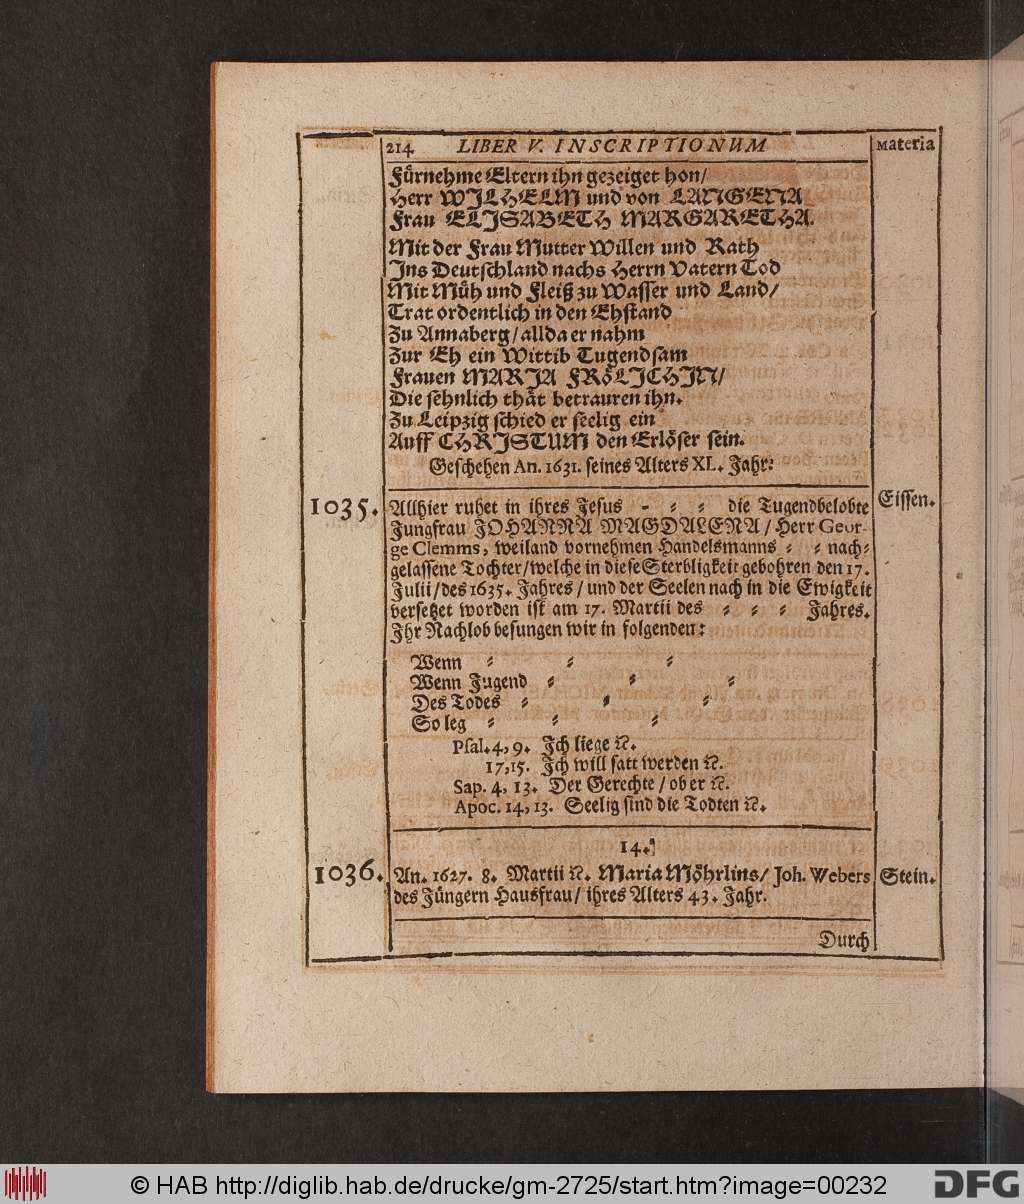 214 LIBER V. INSCRIPTIONUM Materia
Fürnehme Eltern ihn gezeiget hon/
Herr WILHELM und von LANGENA
Frau ELISABETH MARGARETHA.
Mit der Frau Mutter Willen und Rath
Ins Deutschland nachs Herrn Vatern Tod
Mit Müh und Fleiß zu Wasser und Land/
Trat ordentlich in den Ehstand
Zu Annaberg/allda er nahm
Zur Eh ein Wittib Tugendsam
Frauen MARIA FRÖLICHIN/
Die sehnlich thät betrauren ihn.
Zu Leipzig schied er seelig ein
Auff CHRISTUM den Erlöser sein.
Geschehen An. 1631. seines Alters XL. Jahr:
1035. Allhier ruhet in ihres Jesus - - - die Tugendbelobte Eissen.
Jungfrau JOHANNA MAGDALENA/Herr Geor-
ge Clemms, weiland vornehmen Handelsmanns - - nach-
gelassene Tochter/welche in diese Sterbligkeit gebohren den 17.
Julii/des 1635. Jahres/und der Seelen nach in die Ewigkeit
versetzet worden ist am 17. Martii des - - - Jahres.
Ihr Nachlob besungen wir in folgenden:
Wenn - - -
Wenn Jugend - - -
Des Todes - - -
So leg - - -
Psal. 4, 9. Ich liege ꝛc.
17, 15. Ich will satt werden ꝛc.
Sap. 4, 13. Der Gerechte/ob er ꝛc.
Apoc. 14, 13. Seelig sind die Todten ꝛc.
14.
1036. An. 1627. 8. Martii ꝛc. Maria Möhrlins/Joh. Webers Stein.
des Jüngern Hausfrau/ihres Alters 43. Jahr.
Durch
© HAB http://diglib.hab.de/drucke/gm-2725/start.htm?image=00232
DFG